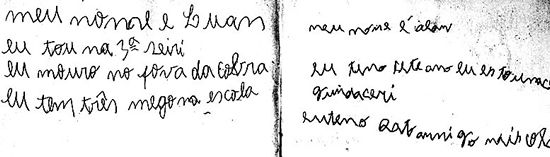 meu nome e Luan
eu tou na 3ª seiri
eu mouro no fova da cobra
eu tem três megona escola
meu nome é alan
eu teno sete ano eu estou nac
guindaceri
euteno